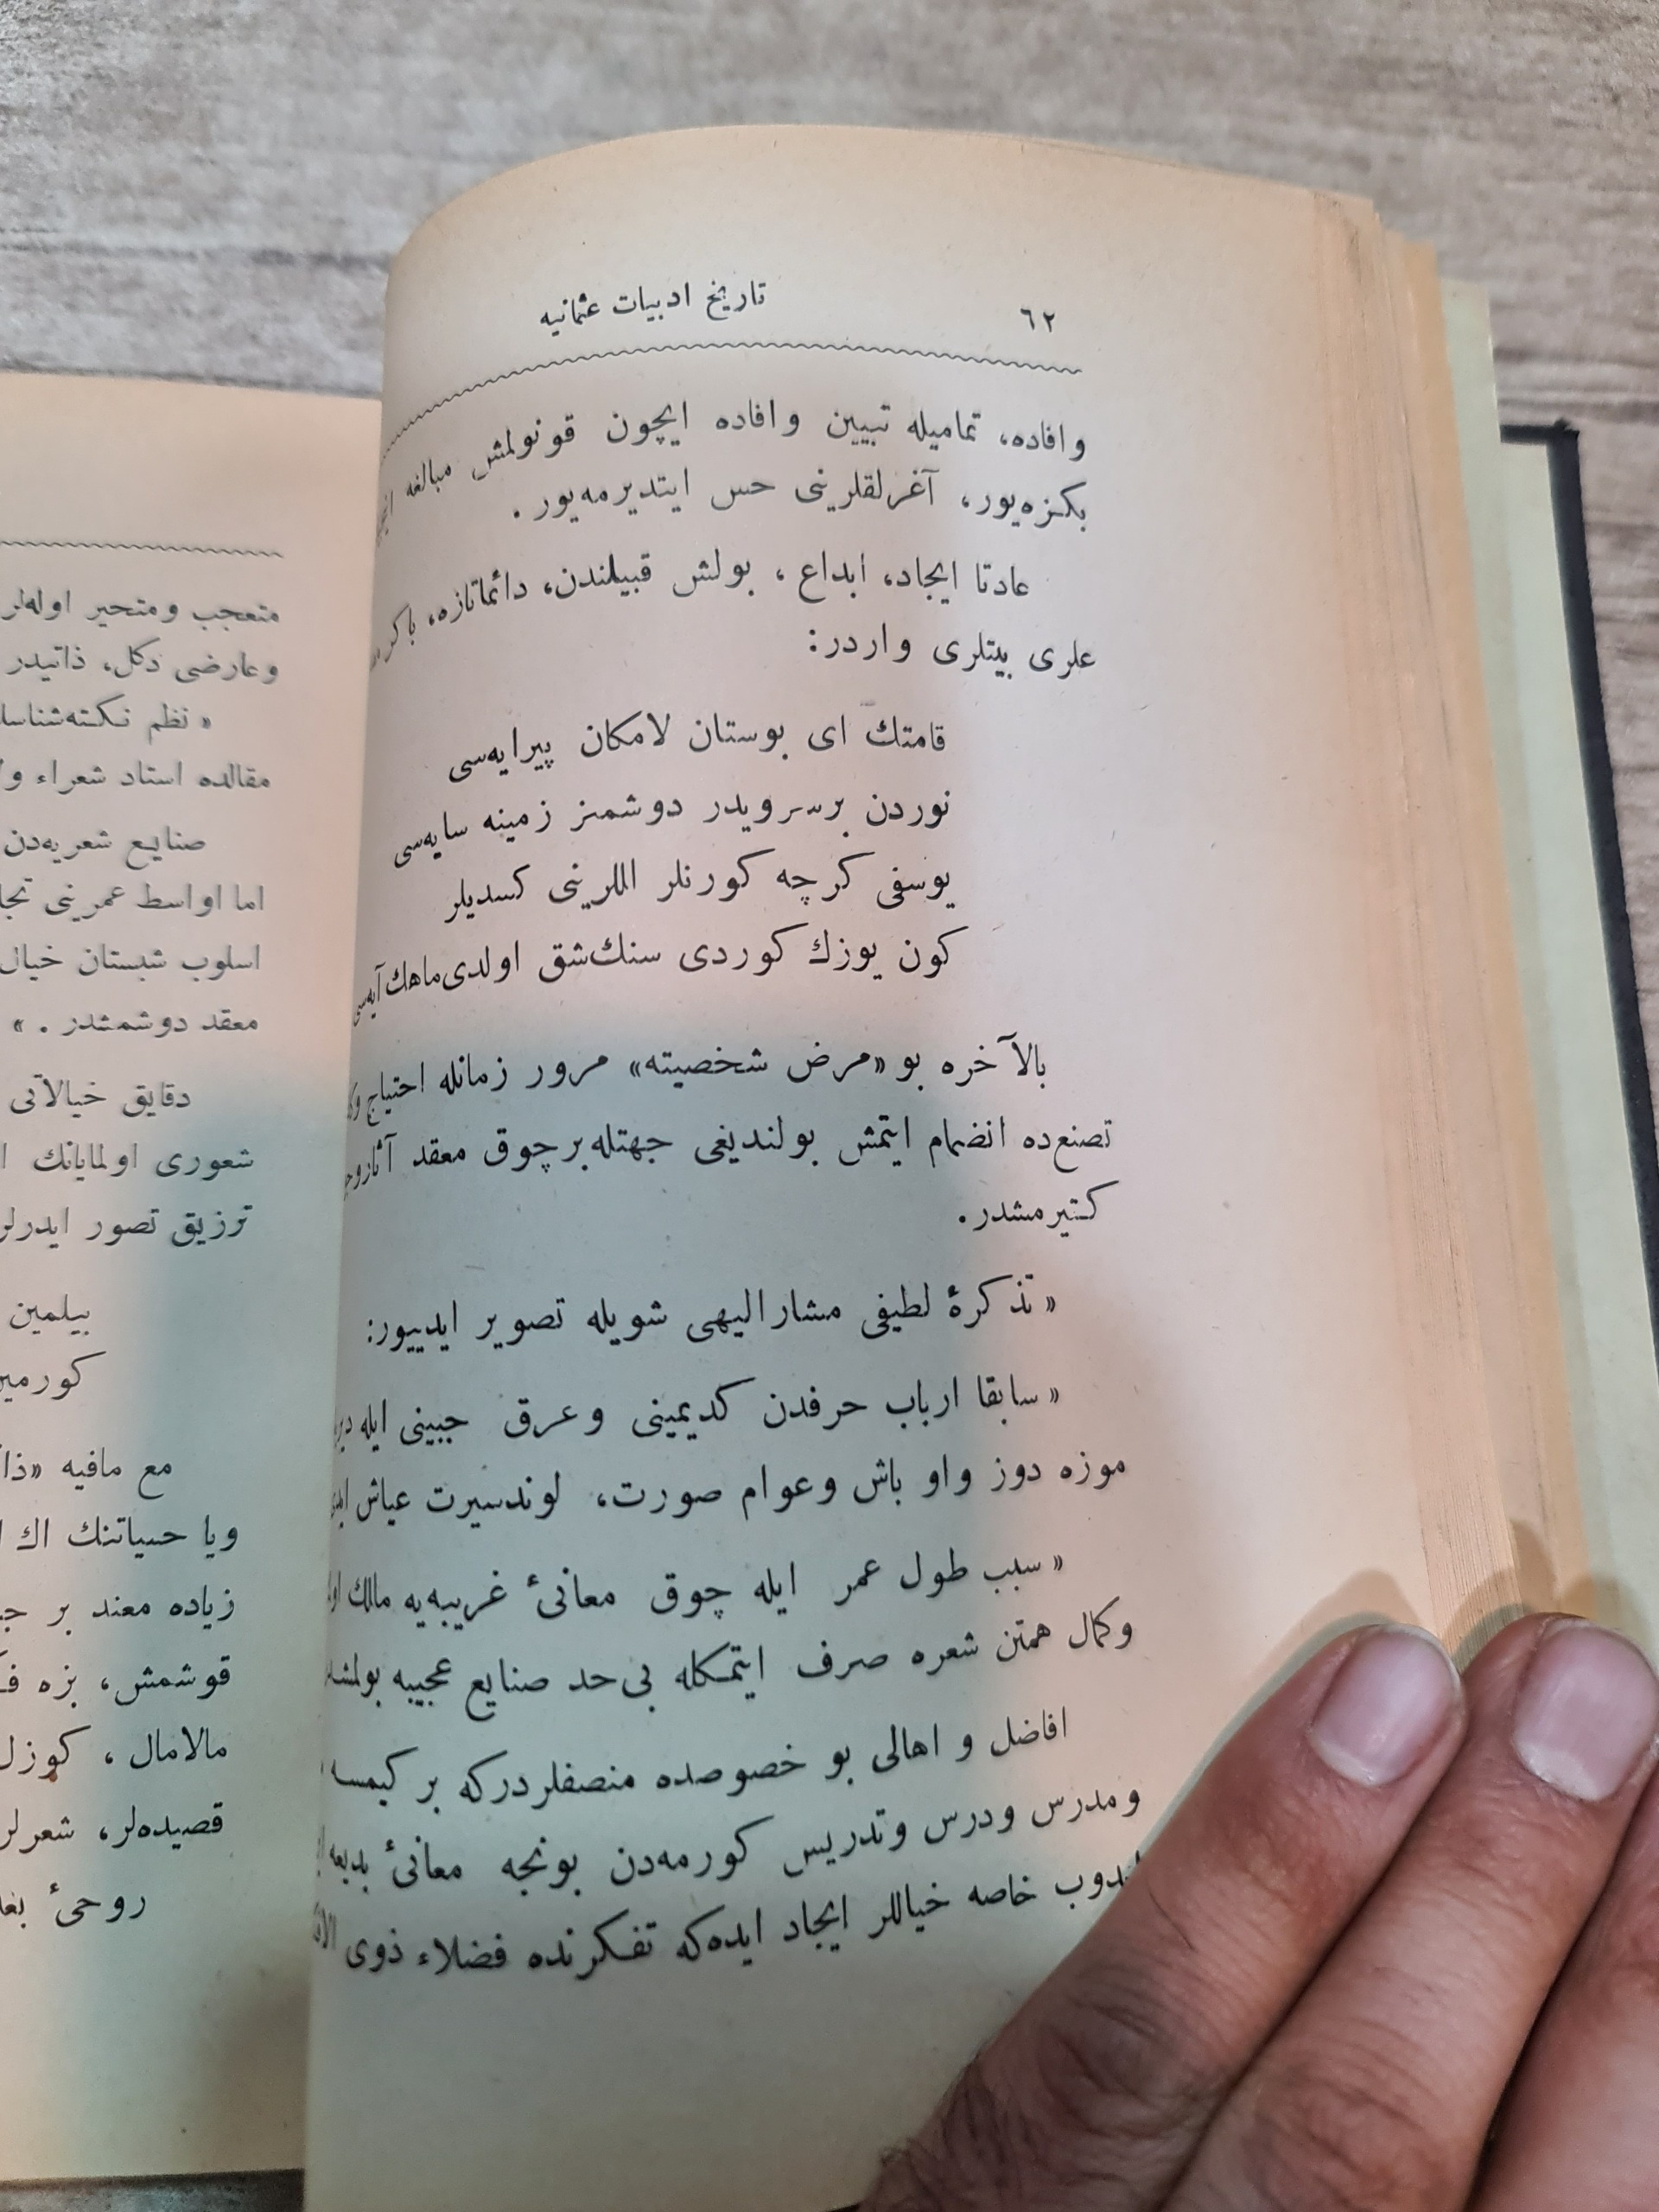 ٦٢
تاريخ ادبيات عثمانيه
وافاده، تماميله تبيين وافاده ايچون قونولمش مبالغه
بكزه‌يور، آغرلقلرينى حس ايتديرمه‌يور .
عادتا ايجاد، ابداع ، بولش قبيلندن، دائماتازه، باكر
علرى بيتلرى واردر:
قامتك اى بوستان لامكان پيرايه‌سى
نوردن برسرويدر دوشمز زمينه سايه‌سى
يوسفى كرچه كورنلر اللرينى كسديلر
كون يوزك كوردى سنك شق اولدى ماهك آيه‌سى
بالآخره بو «مرض شخصيته» مرور زمانله احتياج
تصنع‌ده انضمام ايتمش بولنديغى جهتله برچوق معقد آثار
كتيرمشدر.
« تذكرهٔ لطيفى مشاراليهى شويله تصوير ايدييور:
« سابقا ارباب حرفدن كديمينى وعرق جبينى ايله
موزه دوز واو باش وعوام صورت، لوندسيرت عياش
« سبب طول عمر ايله چوق معانئ غريبه‌يه مالك
وكمال همتن شعره صرف ايتمكله بى‌حد صنايع عجيبه
افاضل و اهالى بو خصوصده منصفلردركه بر كيمسه
ومدرس ودرس وتدريس كورمه‌دن بونجه معانئ بديعه
خاصه خياللر ايجاد ايده‌كه تفكرنده فضلاء ذوى
متعجب ومتحير اوله‌لر
وعارضى دكل، ذاتيدر
« نظم نكته‌شناسا
مقالده استاد شعراء
صنايع شعريه‌دن
اما اواسط عمرينى
اسلوب شبستان خيال
معقد دوشمشدر . »
دقايق خيالاتى
شعورى اولمايانك
ترزيق تصور ايدرلر
بيلمين
مع مافيه
ويا حسياتنك اك
زياده معند بر
قوشمش، بزه
مالامال ، كوزل
قصيده‌لر، شعرلر
روحئ